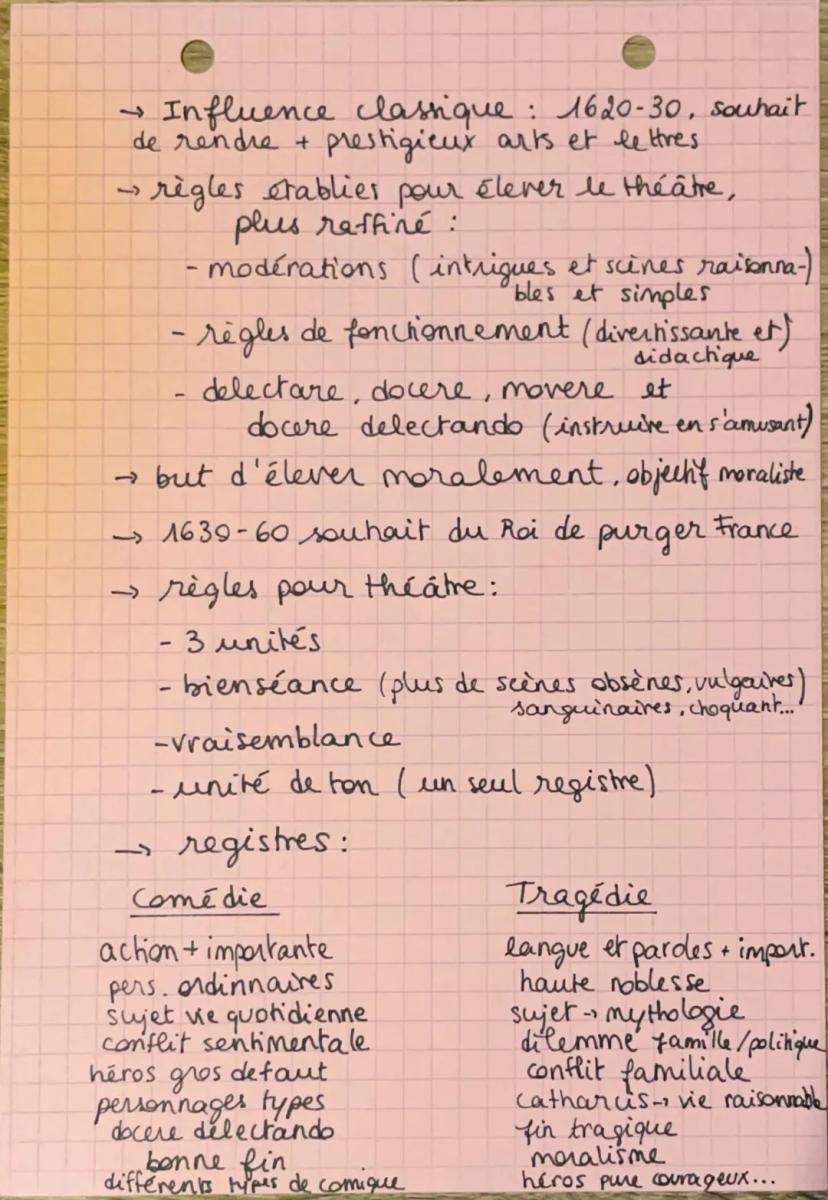 → Influence classique : 1620-30, souhait
de rendre + prestigieux arts et lettres
→ règles établies pour élever le théâtre,
plus raffiné :
- modérations (intrigues et scènes raisonna-)
bles et simples
- règles de fonctionnement (divertissante et)
didactique
- delectare, docere, movere et
docere delectando (instruire en s'amusant)
→ but d'élever moralement, objectif moraliste
→ 1630-60 souhait du Roi de purger France
→ règles pour théâtre :
- 3 unités
- bienséance (plus de scènes obsènes, vulgaires)
sanguinaires, choquant...
-vraisemblance
- unité de ton (un seul registre)
→ registres :
Comédie
action + importante
pers. ordinnaires
sujet vie quotidienne
conflit sentimentale
héros gros defaut
personnages types
docere délectando
bonne fin
différents types de comique
Tragédie
langue et paroles + import.
haute noblesse
sujet → mythologie
dilemme famille/politique
conflit familiale
catharcis → vie raisonnable
fin tragique
moralisme
héros pure courageux...